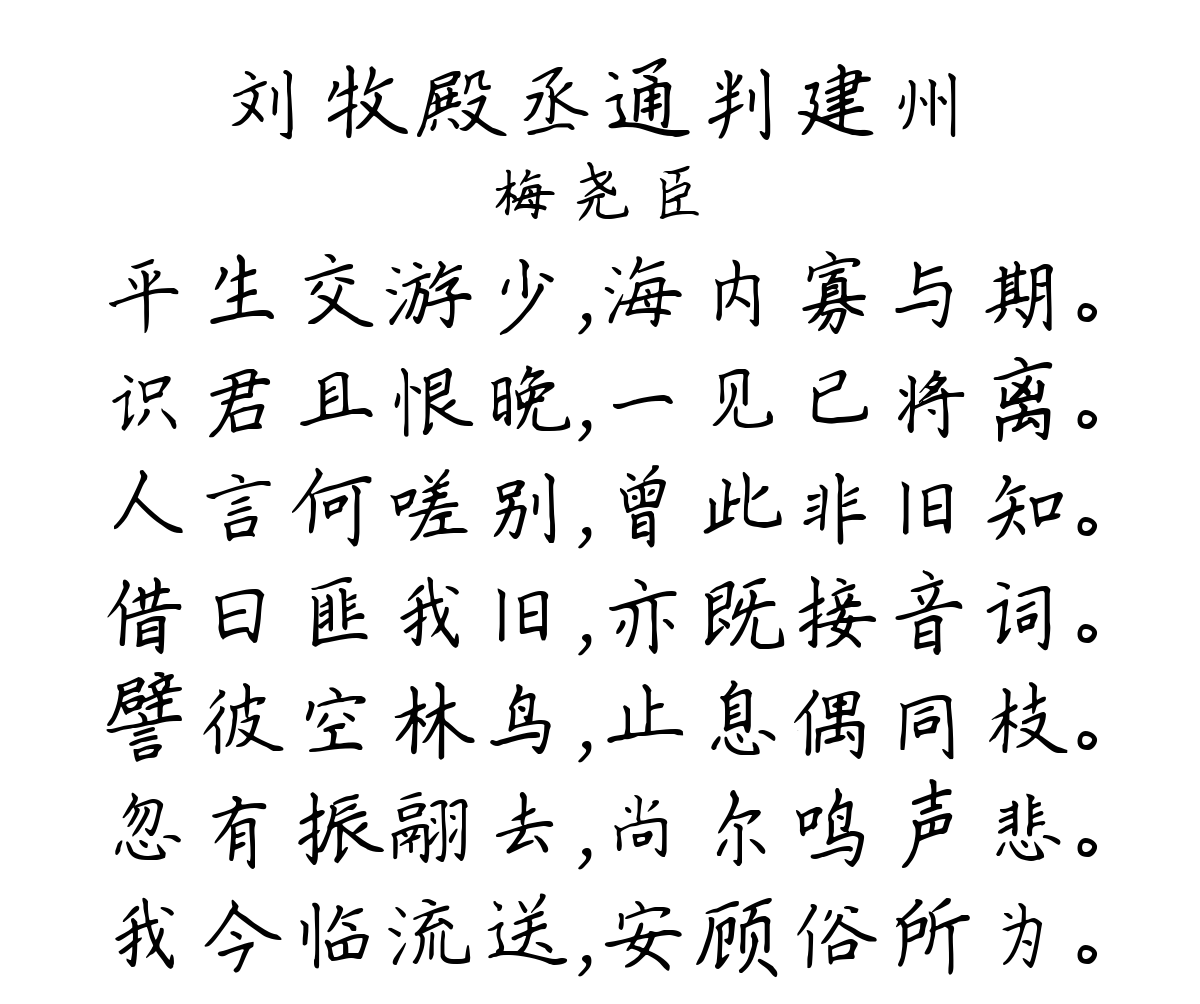 刘牧殿丞通判建州
梅尧臣
平生交游少,海内寡与期。
识君且恨晚,一见已将离。
人言何嗟别,曾此非旧知。
借曰匪我旧,亦既接音词。
譬彼空林鸟,止息偶同枝。
忽有振翮去,尚尔鸣声悲。
我今临流送,安顾俗所为。